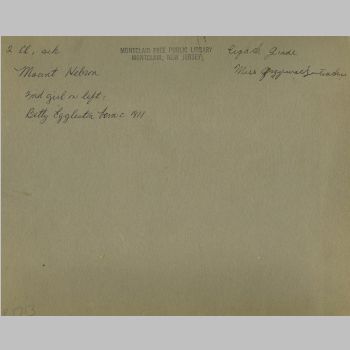 2 Cl, sch
MONTCLAIR FREE PUBLIC LIBRARY
MONTCLAIR, NEW JERSEY,
Eighth Grade
Mount Hebron
Miss teacher
2nd girl on left:
Betty Eggleston born c 1911